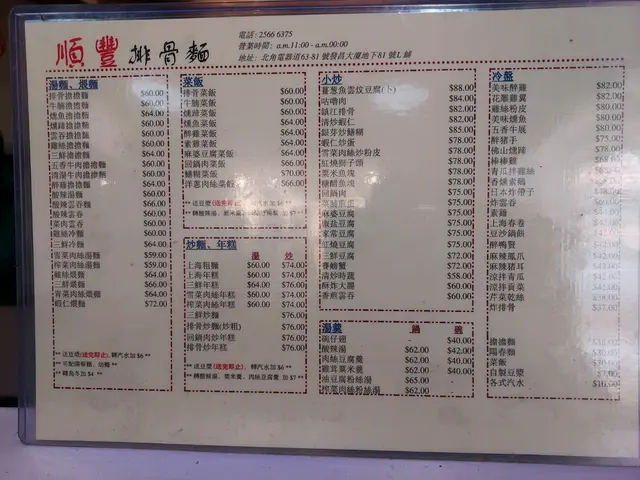 順豐排骨麵
電話: 2566 6375
營業時間: a.m.11:00 - a.m.00:00
地址: 北角電器道63-81號發昌大廈地下81號L舖
湯麵、煨麵
排骨擔擔麵 $60.00
牛腩擔擔麵 $60.00
燻魚擔擔麵 $64.00
燻蹄擔擔麵 $60.00
雲吞擔擔麵 $60.00
雞絲擔擔麵 $60.00
三鮮擔擔麵 $64.00
五香牛肉擔擔麵 $60.00
清湯牛肉擔擔麵 $60.00
醉雞擔擔麵 $64.00
酸辣湯麵 $60.00
酸辣雲吞麵 $66.00
酸辣雲吞 $60.00
菜肉雲吞 $60.00
雞絲冷麵 $60.00
三鮮冷麵 $64.00
雪菜肉絲湯麵 $59.00
榨菜肉絲湯麵 $59.00
雞絲煨麵 $64.00
三鮮煨麵 $66.00
青菜肉絲煨麵 $64.00
蝦仁煨麵 $72.00
** 送豆漿(送完即止)、轉汽水加 $6 **
** 可配闊條麵、幼麵 **
** 轉烏冬加 $4 **
菜飯
排骨菜飯 $60.00
牛腩菜飯 $60.00
燻蹄菜飯 $60.00
燻魚菜飯 $64.00
醉雞菜飯 $64.00
素雞菜飯 $64.00
麻婆豆腐菜飯 $64.00
回鍋肉菜飯 $66.00
鱔糊菜飯 $70.00
洋蔥肉絲菜飯 $66.00
** 送豆漿(送完即止)、轉汽水加 $6 **
炒麵、年糕
湯 炒
上海粗麵 $60.00 $74.00
上海年糕 $60.00 $74.00
三鮮年糕 $64.00 $76.00
雪菜肉絲年糕 $60.00 $74.00
榨菜肉絲年糕 $60.00 $74.00
三鮮炒麵 $76.00
排骨炒麵(炒粗) $76.00
回鍋肉炒年糕 $76.00
排骨炒年糕 $76.00
** 送豆漿(送完即止)、轉汽水加 $6 **
** 轉酸辣湯、粟米羹、肉絲豆腐羹 加 $7 **
小炒
薯蔥魚雲炆豆腐(卜) $88.00
咕嚕肉 $84.00
鎮江排骨 $82.00
清炒蝦仁 $82.00
銀芽炒鱔糊 $85.00
蝦仁炒蛋 $78.00
雪菜肉絲炒粉皮 $78.00
紅燒獅子頭 $78.00
粟米魚塊 $78.00
糖醋魚塊 $78.00
回鍋肉 $75.00
$75.00
麻婆豆腐 $75.00
椒鹽豆腐 $75.00
家常豆腐 $75.00
紅燒豆腐 $75.00
三鮮豆腐 $72.00
賽螃蟹 $72.00
清炒時蔬 $58.00
酥炸大腸 $60.00
香煎雲吞 $60.00
湯羹
鍋 碗
碗仔翅 - $40.00
酸辣湯 $62.00 $42.00
肉絲豆腐羹 $62.00 $40.00
雞茸粟米羹 $62.00 $40.00
油豆腐粉絲湯 $65.00 -
榨菜肉絲粉絲湯 $62.00
冷盤
美味醉雞 $82.00
花雕雞翼 $82.00
雞絲粉皮 $80.00
美味燻魚 $80.00
五香牛展
醉豬手
佛山燻蹄
棒棒雞
青瓜拌雞絲
香燻素鵝
日本炸帶子
炸雲吞
素雞
上海春卷
豆沙鍋餅
醉鴨腎
麻辣鳳爪
麻辣豬耳
涼拌青瓜
涼拌貢菜
芹菜乾絲
炸排骨
擔擔麵
陽春麵
菜飯
自製豆漿
各式汽水